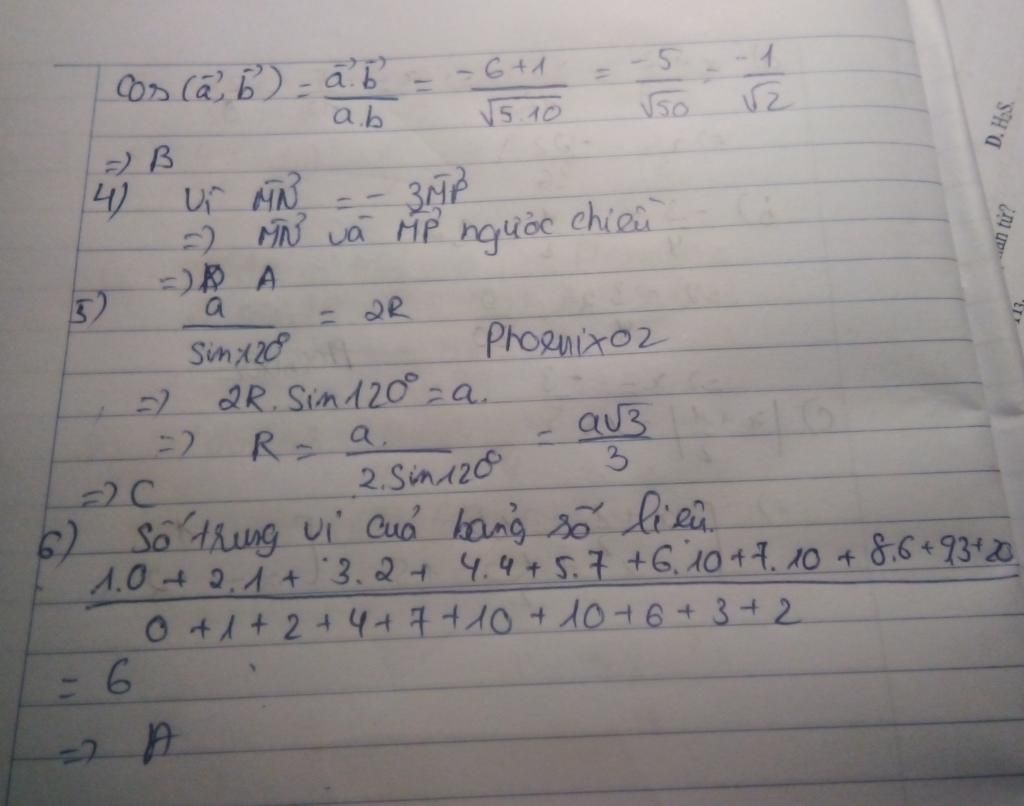 cos(a⃗, b⃗) = a⃗.b⃗ / a.b = -6+1 / √5.10 = -5 / √50 = -1 / √2
=> B
4) Vì MN⃗ = - 3MP⃗
=> MN⃗ và MP⃗ ngược chiều
=> A
5) a / sin120° = 2R
Phoenix02
=> 2R.sin120° = a.
=> R = a. / 2.sin120° = a√3 / 3
=> C
6) Số trung vị cuả bảng số liệu.
1.0 + 2.1 + 3.2 + 4.4 + 5.7 + 6.10 + 7.10 + 8.6 + 9.3 + 20
0 + 1 + 2 + 4 + 7 + 10 + 10 + 6 + 3 + 2
= 6
=> A
D. H₂S.